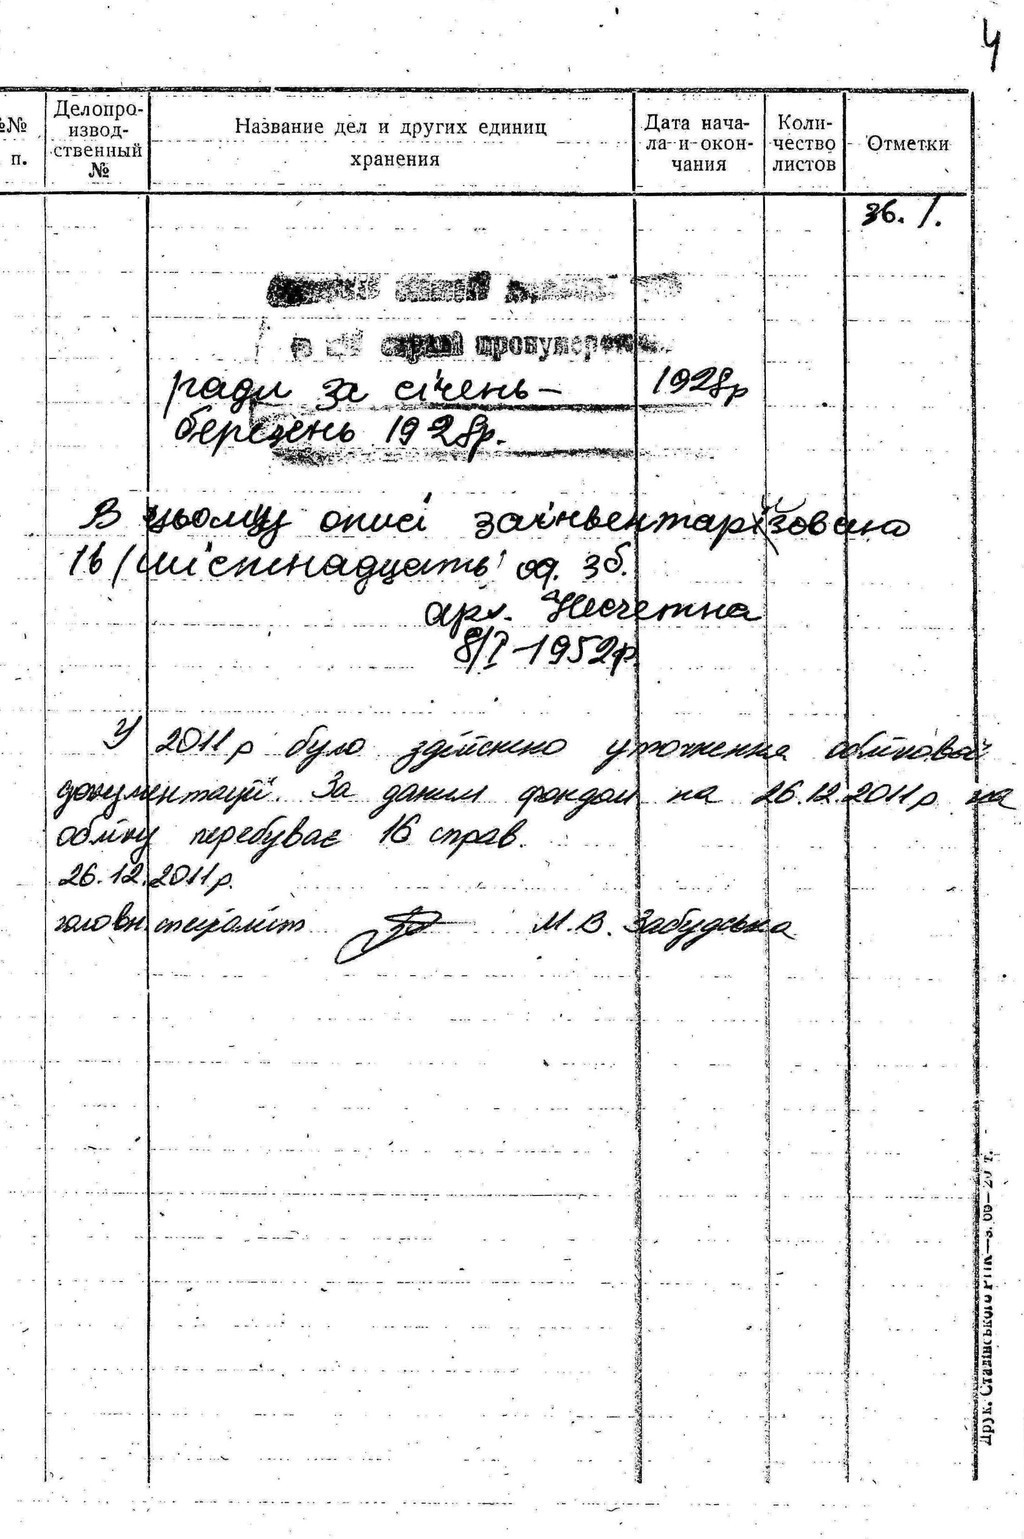 4
№№ п.
Делопро-
извод-
ственный
№
Название дел и других единиц
хранения
Дата нача-
ла и окон-
чания
Коли-
чество
листов
Отметки
зв. 1.
справі пронумеров
ради за січень – 1928р
березень 1928р.
В цьому описі заінвентарізовано
16 /шістнадцать од. зб.
арх. Несчетна
8/I-1952р
У 2011р було здійснено уточнення облікової
документації. За даним фондом на 26.12.2011р на
обліку перебуває 16 справ.
26.12.2011р.
головн. спеціаліст М.В. Забудська
Друк. Сталінського РПК—з. 66—20 т.